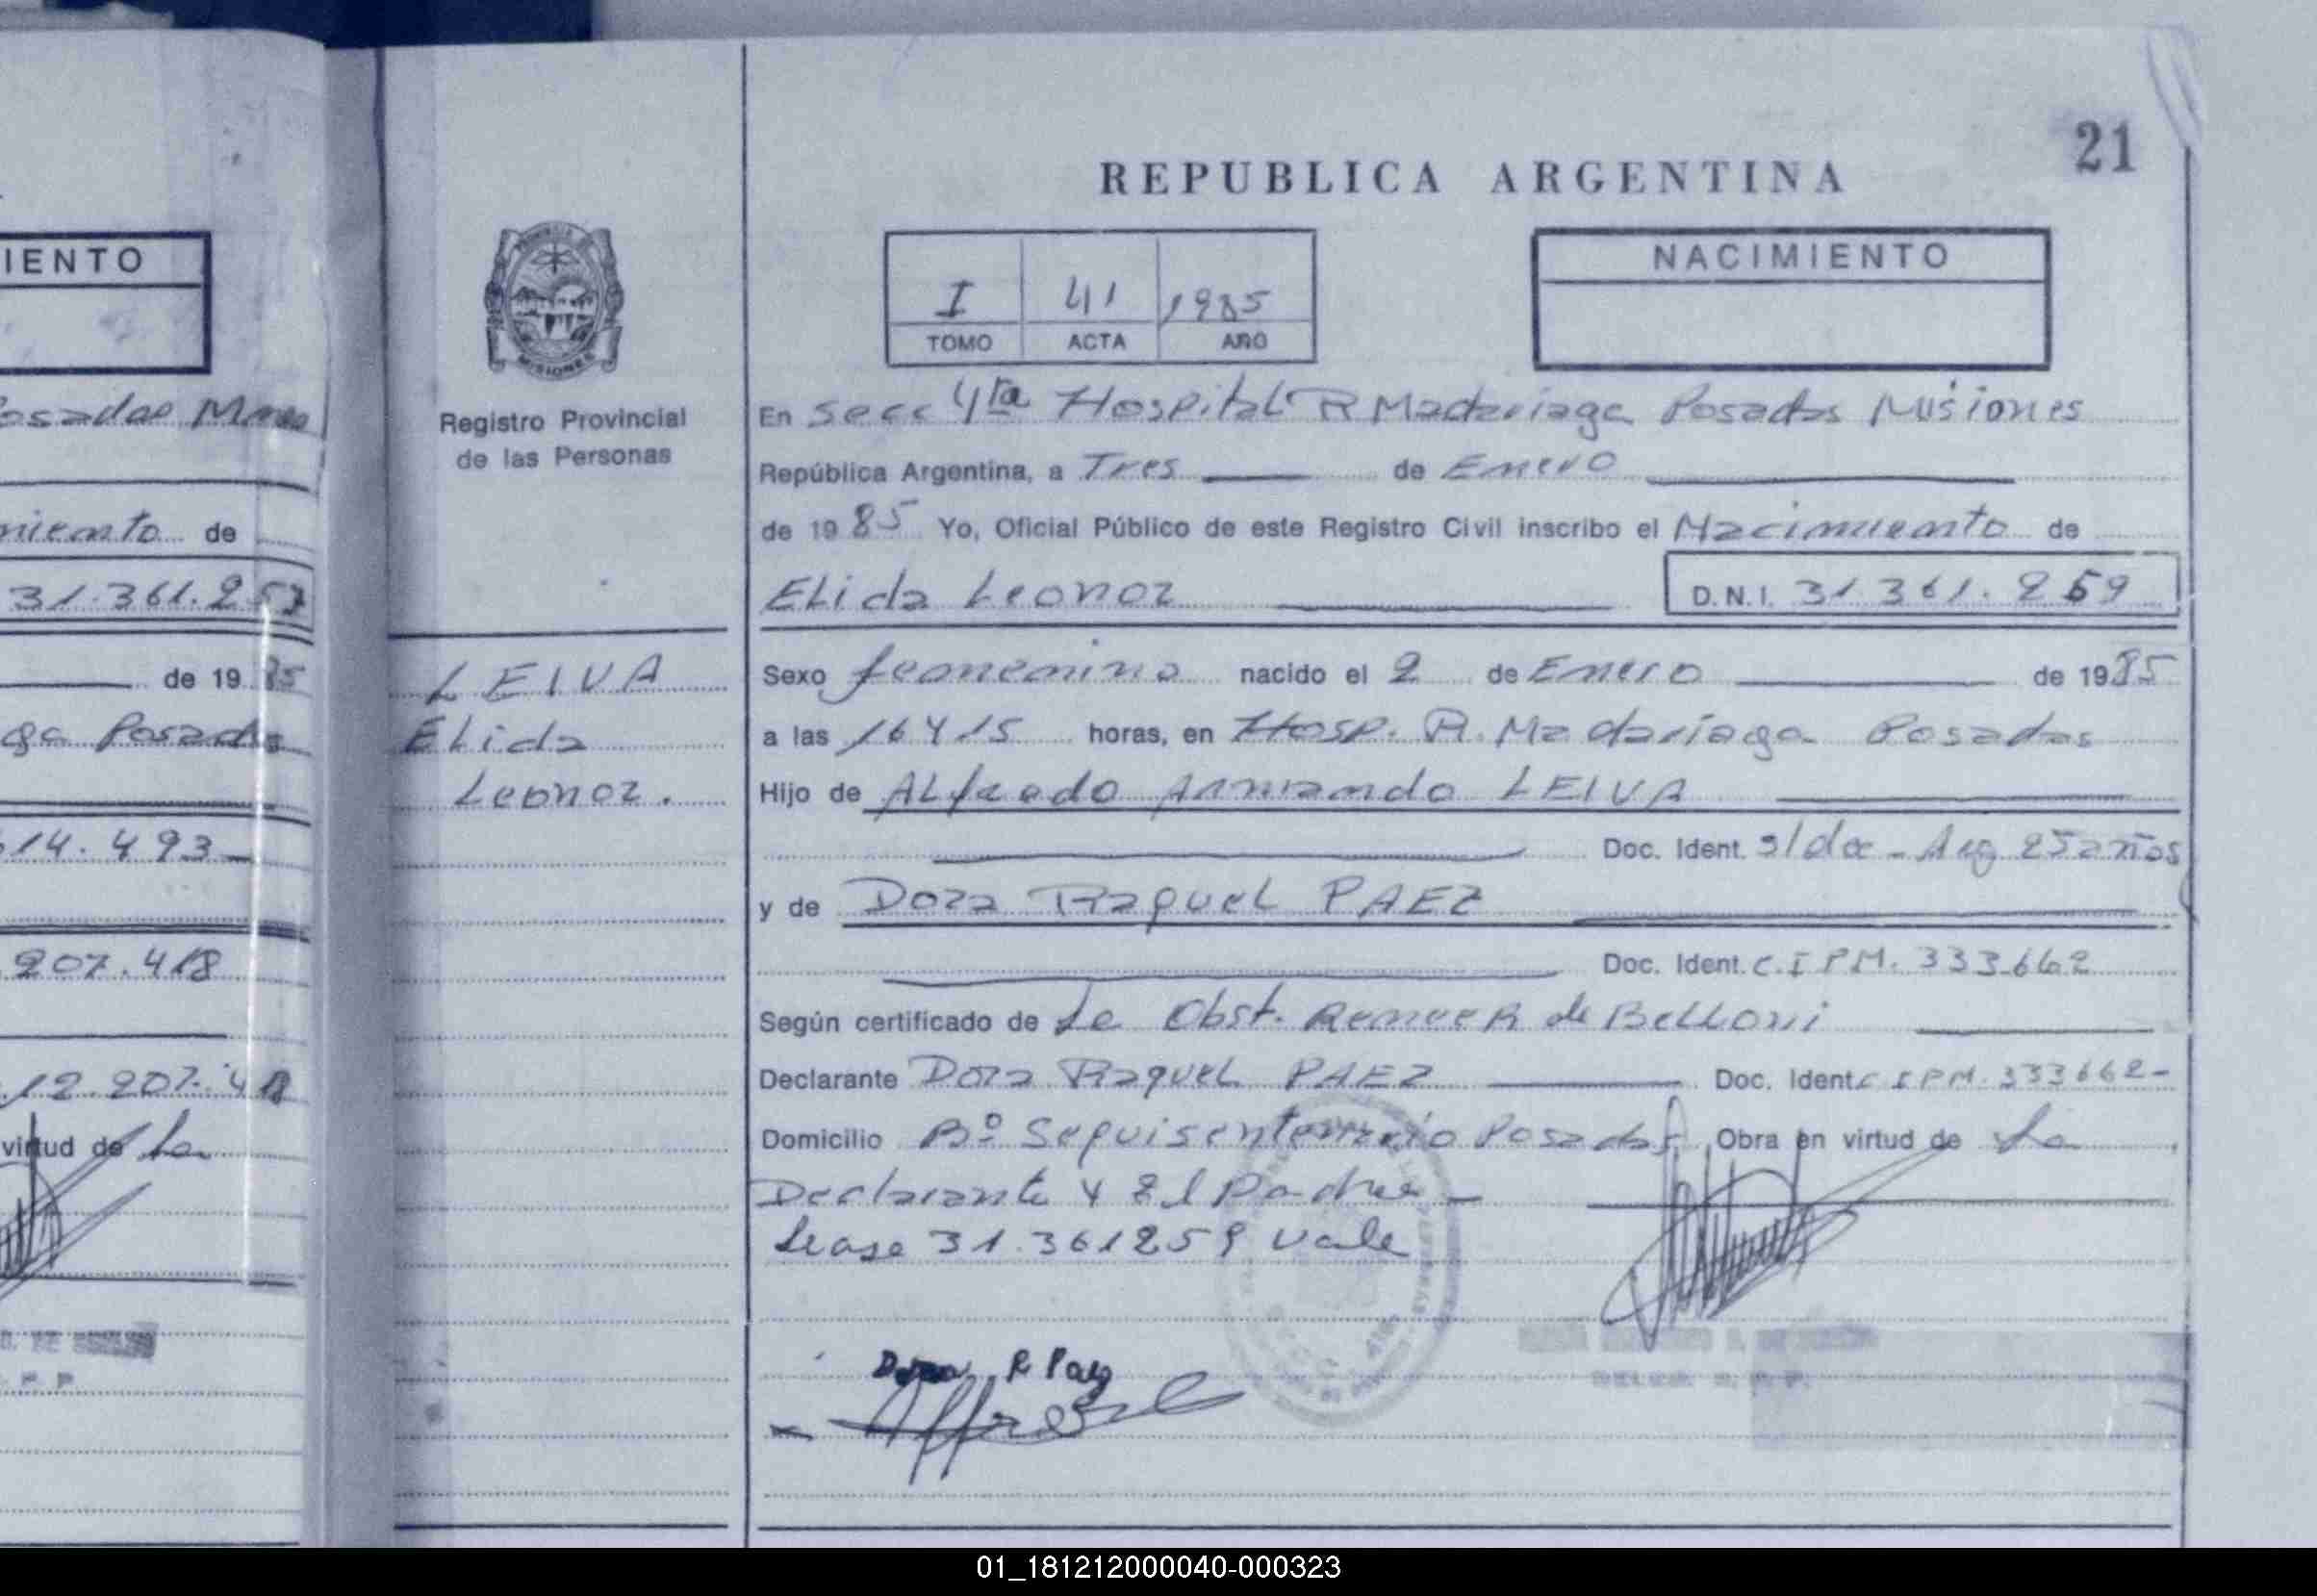 IENTO
osadas Mnes
miento de
31.361.257
de 1985
aga Posadas
14.493
207.418
12.207.418
virtud de La
MISIONES
Registro Provincial
de las Personas
LEIVA
Elida
Leonor.
21
REPUBLICA ARGENTINA
I 41 1985
TOMO ACTA AÑO
NACIMIENTO
En Secc 4ta Hospital R Madariaga Posadas Misiones
República Argentina, a Tres de Enero
de 1985 Yo, Oficial Público de este Registro Civil inscribo el Nacimiento de
Elida Leonor D.N.I. 31.361.259
Sexo femenino nacido el 2 de Enero de 1985
a las 16 y 15 horas, en Hosp. R. Madariaga Posadas
Hijo de Alfredo Armando LEIVA
Doc. Ident. s/doc - Arg 25 años
y de Dora Raquel PAEZ
Doc. Ident. C.I P M. 333.662
Según certificado de La Obst. de Belloni
Declarante Dora Raquel PAEZ Doc. Ident. C I P M. 333662-
Domicilio Bº Sequisentenario Posadas Obra en virtud de La
Declarante y el Padre -
Lease 31.361259 Vale
Dora R Paez
01_181212000040-000323